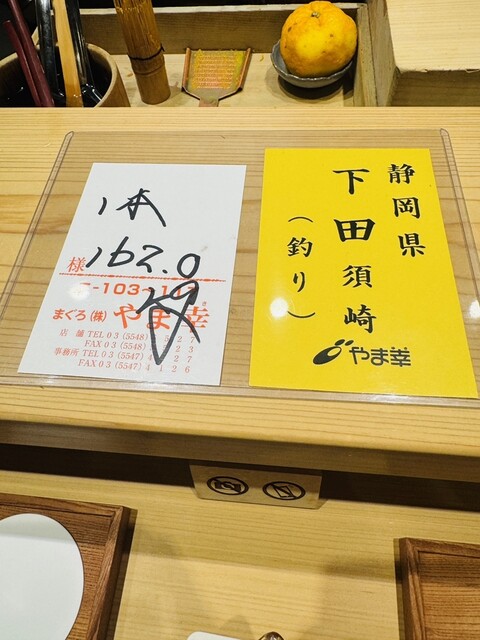 1本
162.0
様
まぐろ(株)やま幸
店舗 TEL 03(5548)
FAX 03(5548)
事務所 TEL 03(5547)
FAX 03(5547)
静岡県
下田須崎
(釣り)
やま幸